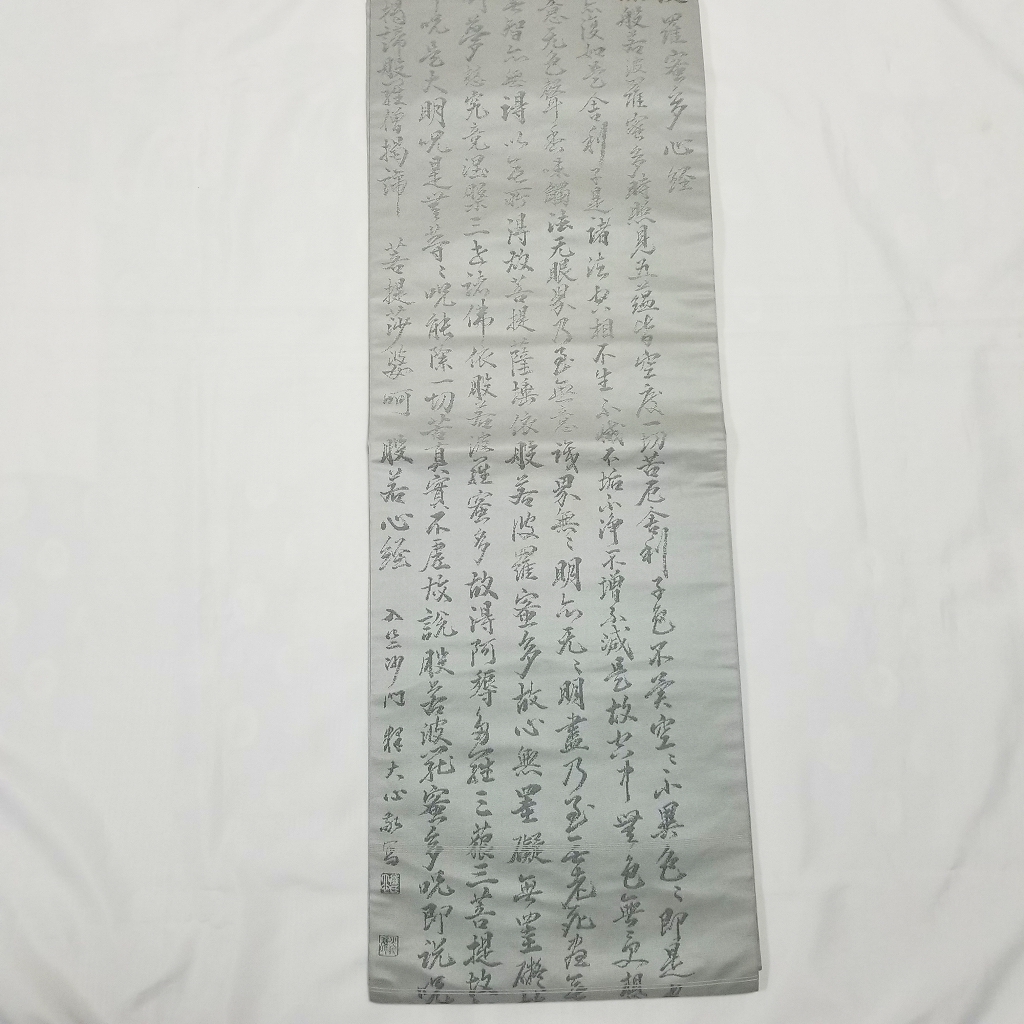 羅蜜多心経
般若波羅蜜多時照見五蘊皆空度一切苦厄舎利子色不異空〻不異色〻即是
亦復如是舎利子是諸法空相不生不滅不垢不浄不増不減是故空中無色無受想
意无色聲香味觸法无眼界乃至無意識界無〻明亦无〻明盡乃至無老死亦無
無智亦無得以無所得故菩提薩埵依般若波羅蜜多故心無罣礙無罣礙故
夢想究竟涅槃三世諸佛依般若波羅蜜多故得阿耨多羅三藐三菩提故
呪是大明呪是無等〻呪能除一切苦真實不虚故説般若波羅蜜多呪即説呪
揭諦般羅僧揭諦 菩提莎婆呵 般若心経 沙門 釋大心敬寫